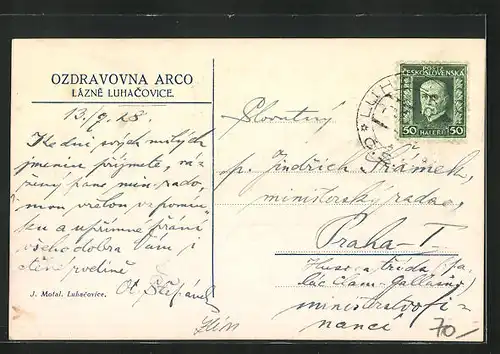 OZDRAVOVNA ARCO
LÁZNĚ LUHAČOVICE.
13./9. 28
Ke dni svých milých
jmenin přijměte, vá-
žený pane min. rado,
mou vřelou vzpomín-
ku a upřímné přání
všeho dobra Vám i
ctěné rodině
Ot. Štěpánek
J. Motal. Luhačovice.
POŠTA
ČESKOSLOVENSKÁ
50 HALÉŘŮ 50
LUH
Slovutný
p.
p. Jindřich
ministerský rada,
Praha-I.
Husova třída (pa-
lác Clam-Gallasův)
ministerstvo fi-
nancí
70,-